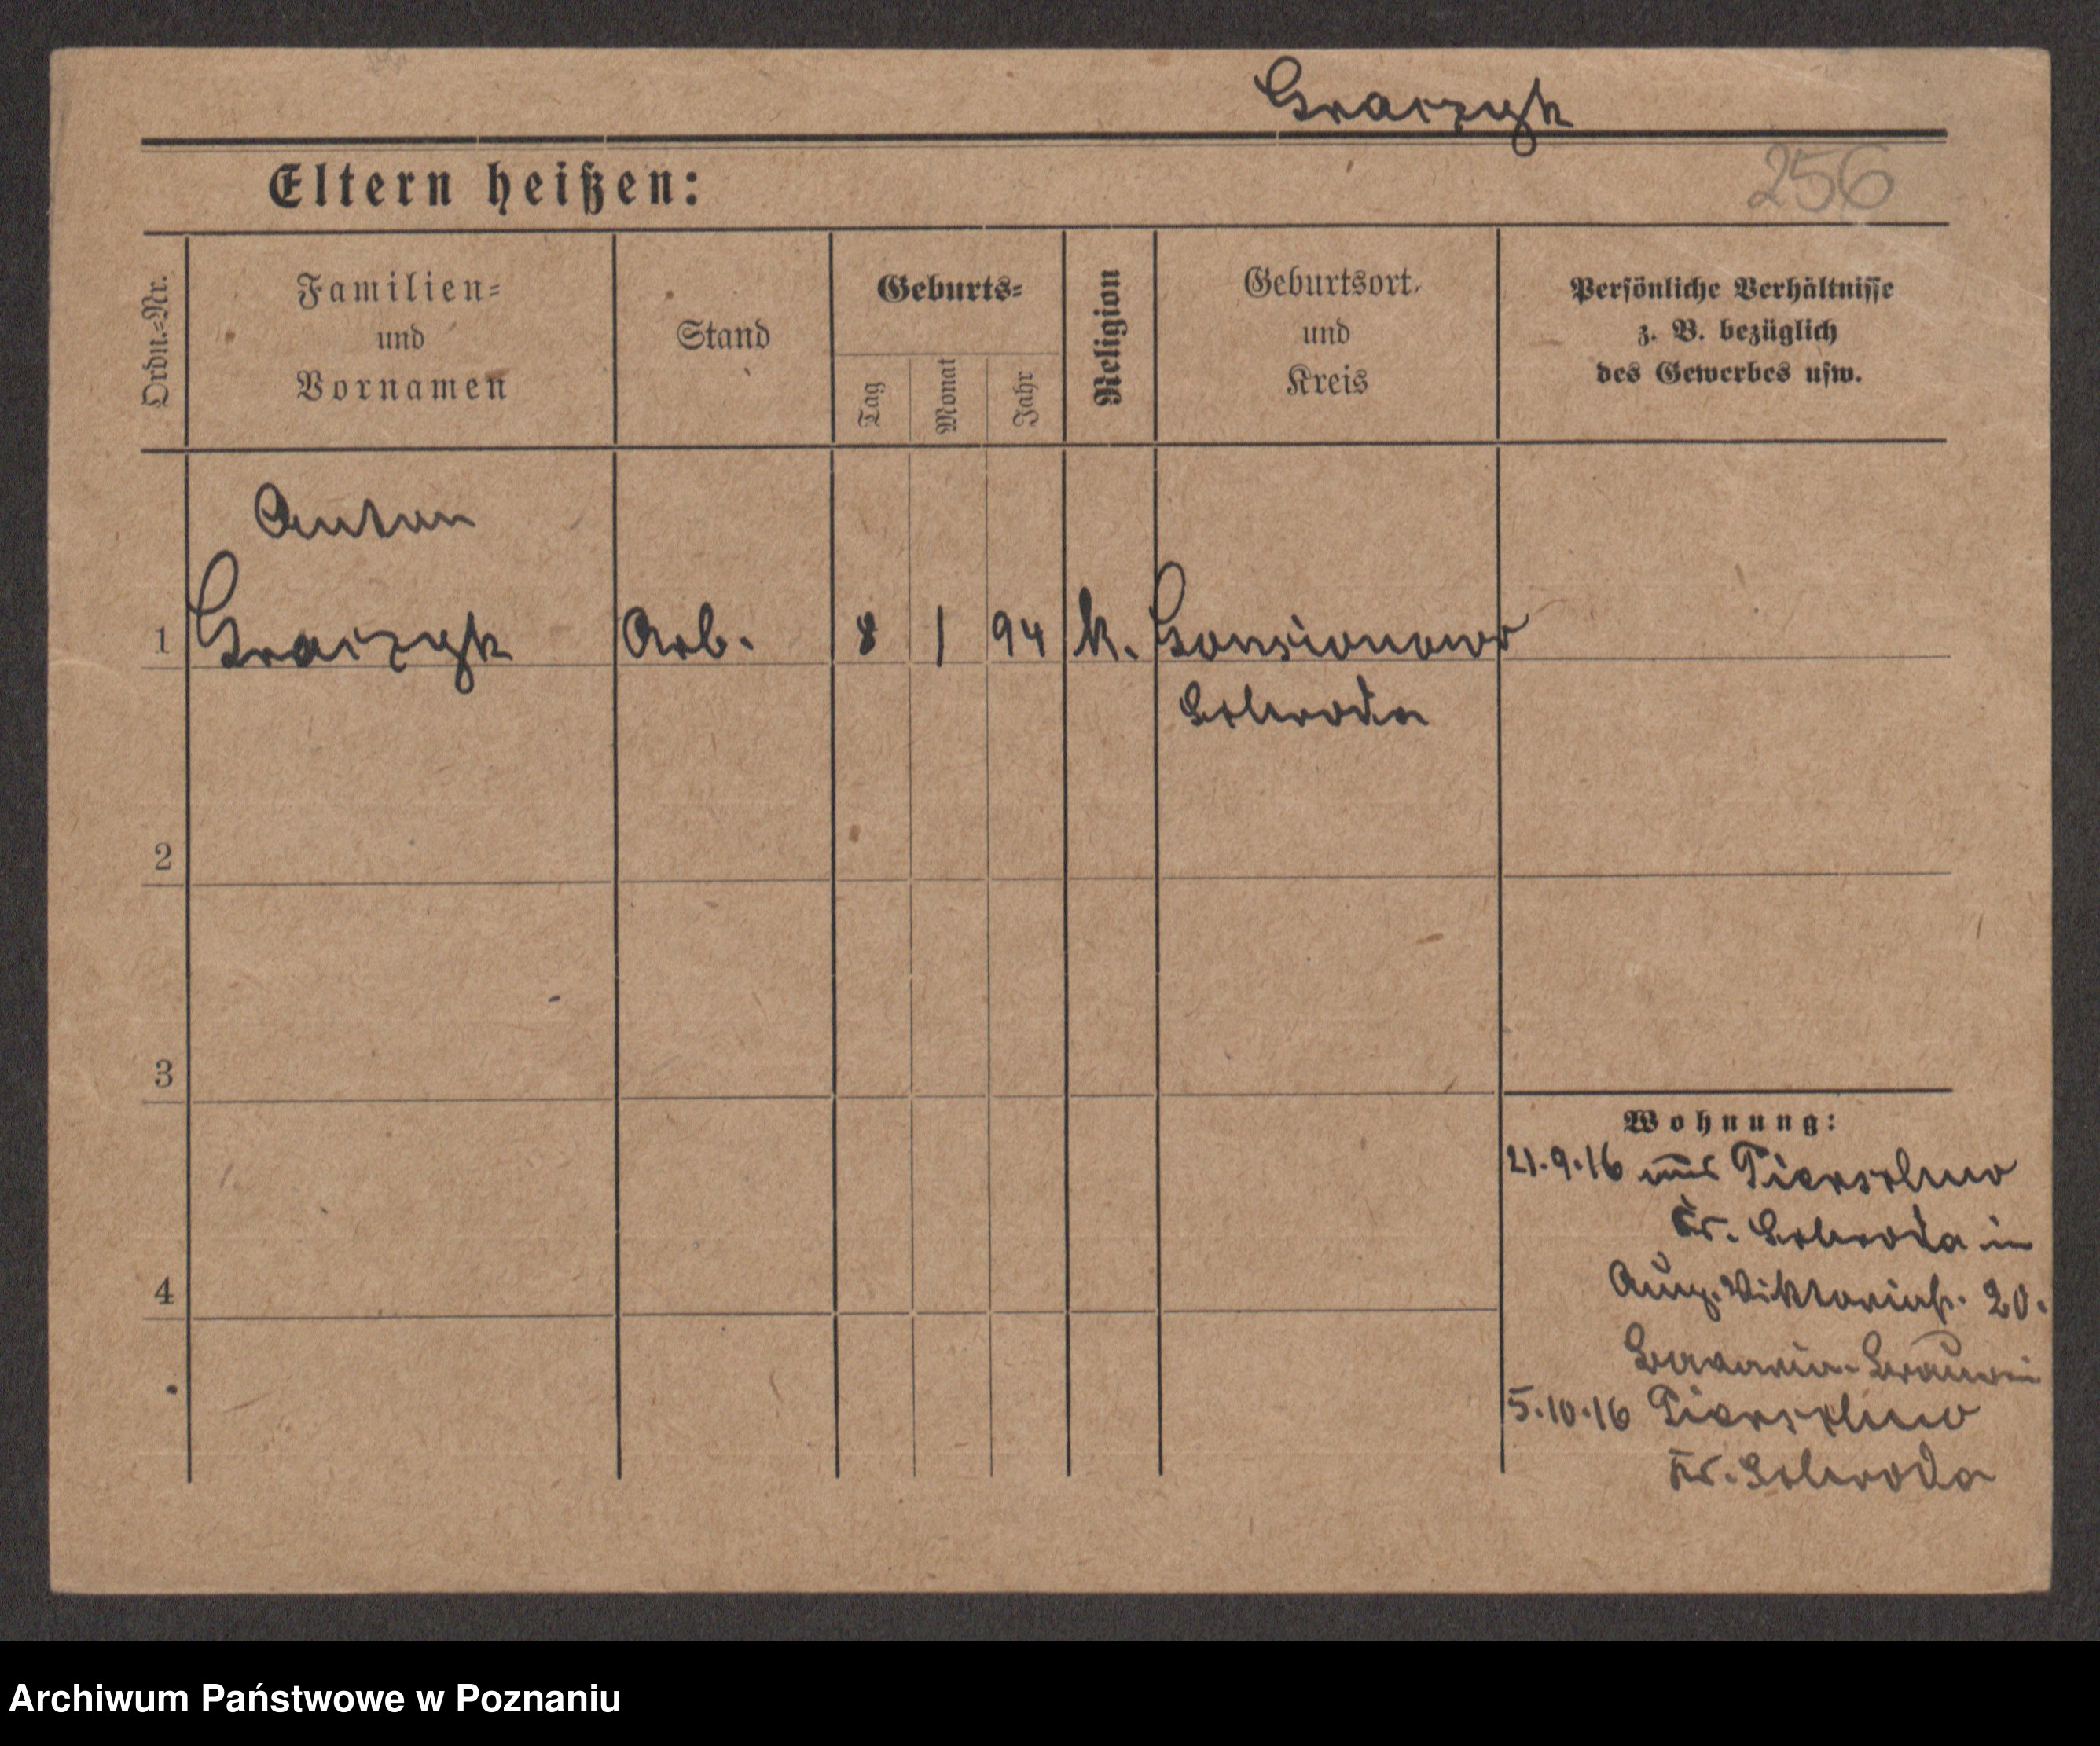 Graczyk
Eltern heißen:
256
Ordn.=Nr.
Familien=
und
Vornamen
Stand
Geburts=
Tag
Monat
Jahr
Religion
Geburtsort
und
Kreis
Persönliche Verhältnisse
z. B. bezüglich
des Gewerbes usw.
Anton
1 Graczyk Arb. 8 1 94 k. Gonsiorowo
Schroda
2
3
4
Wohnung:
21.9.16 aus Pierschno
Kr. Schroda in
Aug. Viktoriastr. 20.
Bavaria-Brauerei
5.10.16 Pierschno
Kr. Schroda
Archiwum Państwowe w Poznaniu